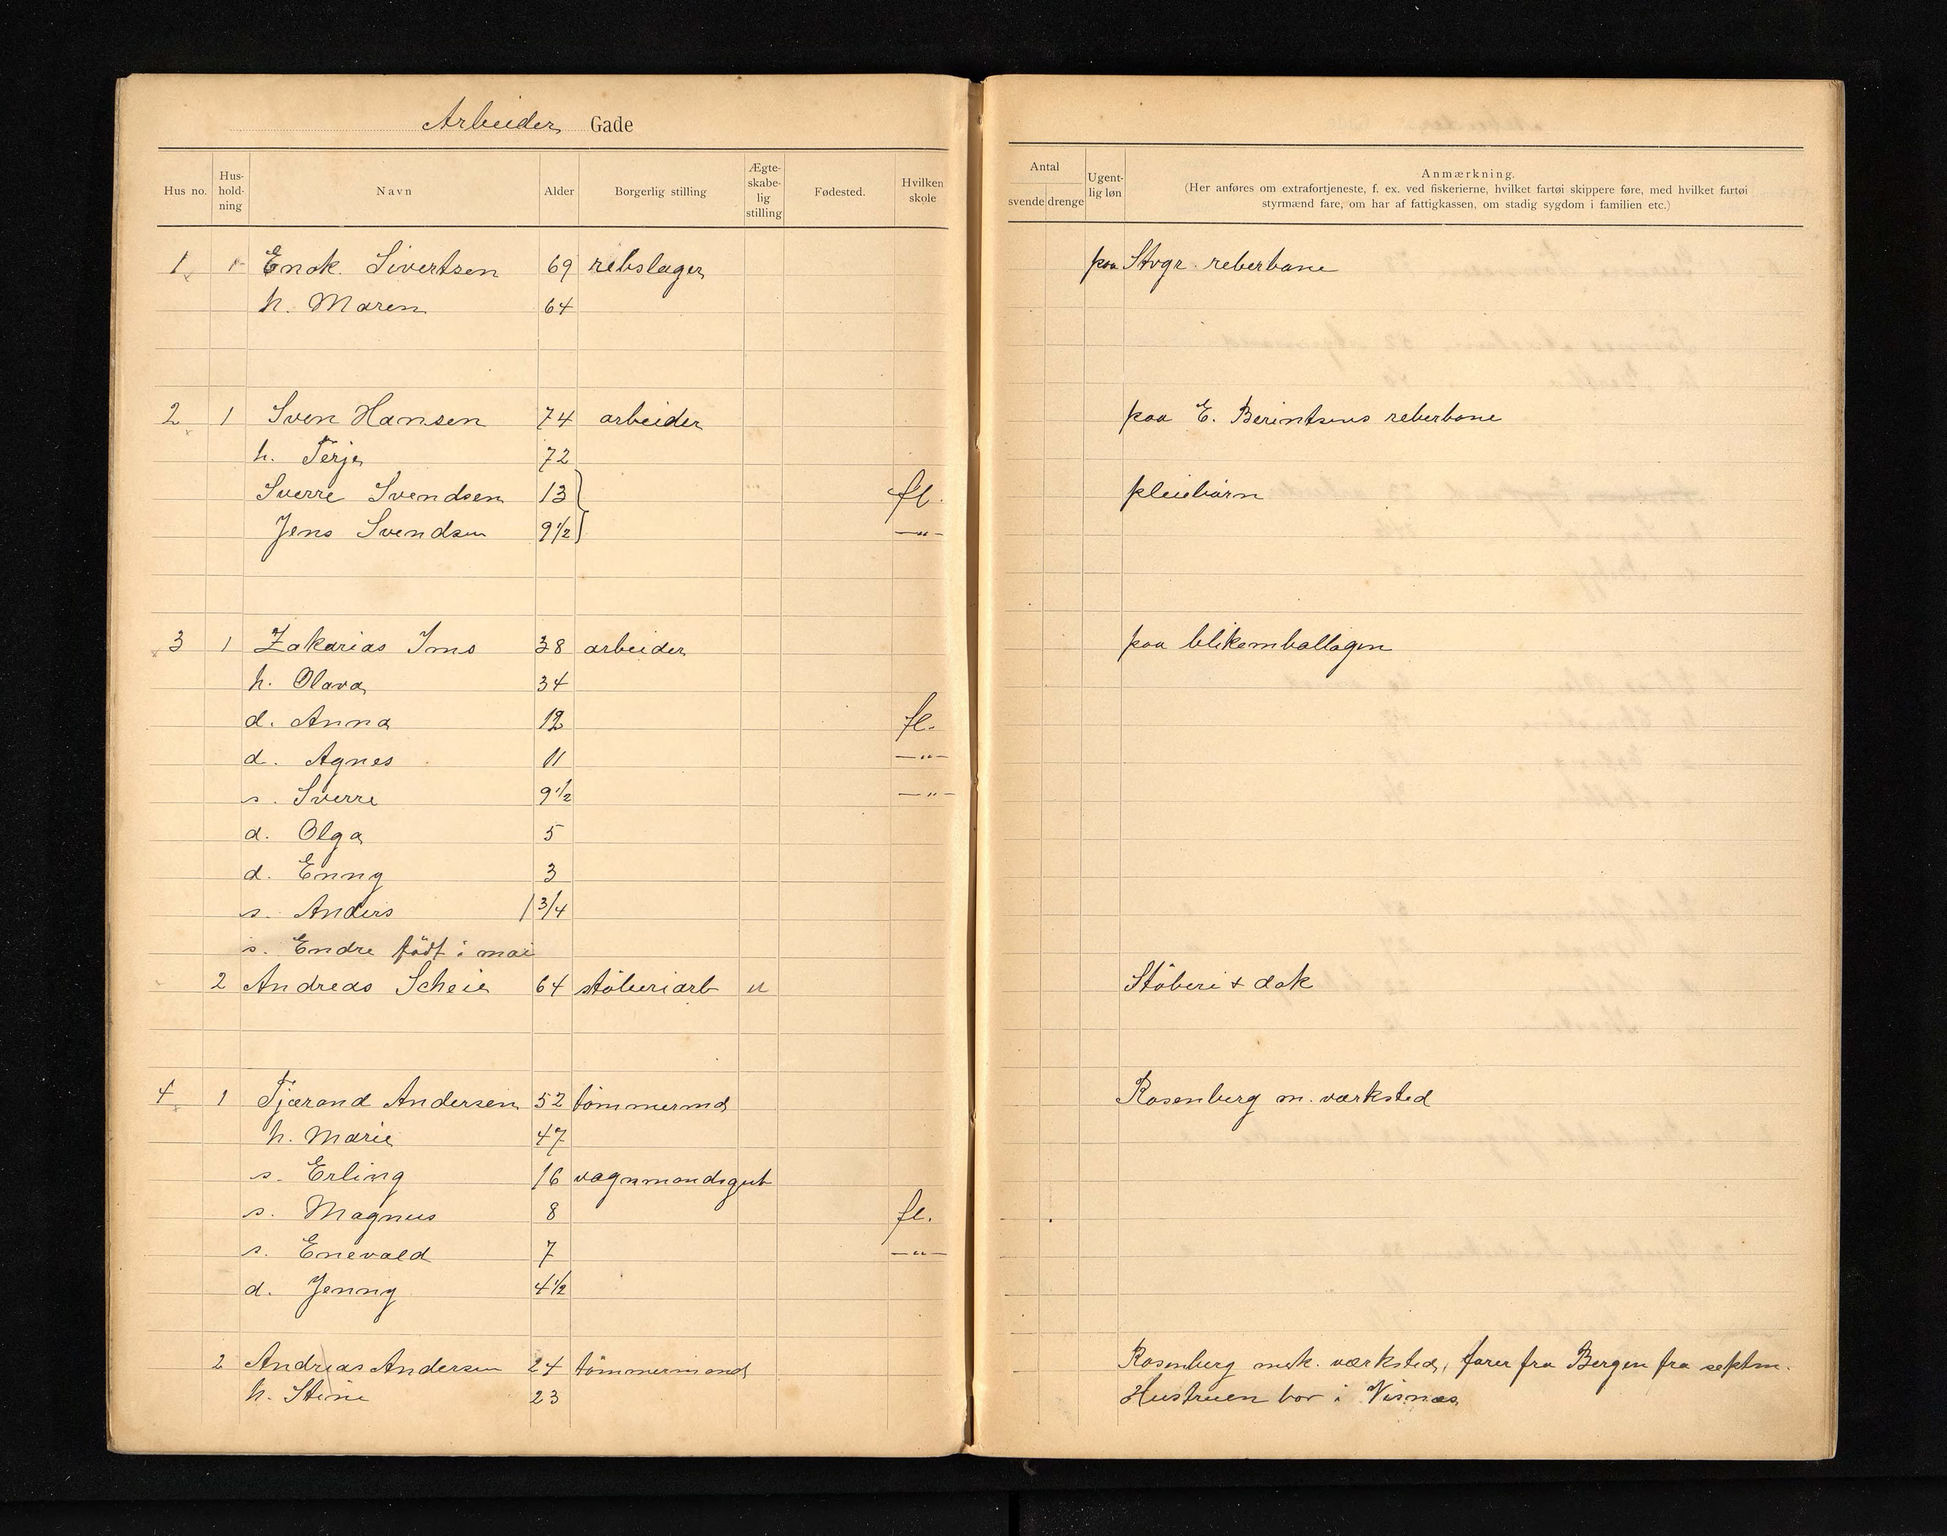 Arbeider Gade
Hus no. Hus-hold-ning Navn Alder Borgerlig stilling Ægte-skabe-lig stilling Fødested. Hvilken skole
Antal svende drenge Ugent-lig løn Anmærkning.
(Her anføres om extrafortjeneste, f. ex. ved fiskerierne, hvilket fartøi skippere føre, med hvilket fartøi
styrmænd fare, om har af fattigkassen, om stadig sygdom i familien etc.)
1 1 Enok. Sivertsen 69 rebslager paa Stvgr. reberbane
h. Maren 64
2 1 Sven Hansen 74 arbeider paa E. Berintsens reberbane
h. Terje 72
Sverre Svendsen 13 fl. pleiebarn
Jens Svendsen 9 1/2 —"—
3 1 Zakarias Ims 38 arbeider paa blikemballagen
h. Olava 34
d. Anna 12 fl.
d. Agnes 11 —"—
s. Sverre 9 1/2 —"—
d. Olga 5
d. Enny 3
s. Anders 1 3/4
s. Endre født i mai
2 Andreas Scheie 64 støberiarb u Støberi & dok
4 1 Tjærand Andersen 52 tømmermd Rosenberg m. værksted
h. Marie 47
s. Erling 16 vognmandsgut
s. Magnus 8 fl.
s. Enevald 7 —"—
d. Jenny 4 1/2
2 Andreas Andersen 24 tømmermand Rosenberg mek. værksted, farer fra Bergen fra septm.
h. Stine 23 Hustruen bor i Visnæs